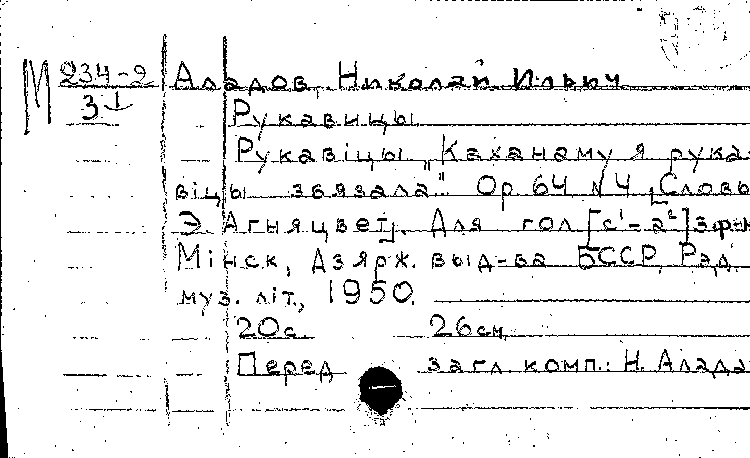 М 234-2 Аладов, Николай Ильич
3↓
Рукавицы
Рукавіцы „Каханаму я рука-
віцы звязала“ Op. 64 N 4, [Словы
Э. Агняцвет]. Для гол [c¹-a²] з ф-н
Мінск, Дзярж. выд-ва БССР, Рэд.
муз. літ., 1950.
20с. 26см.
Перед загл. комп.: Н. Алада